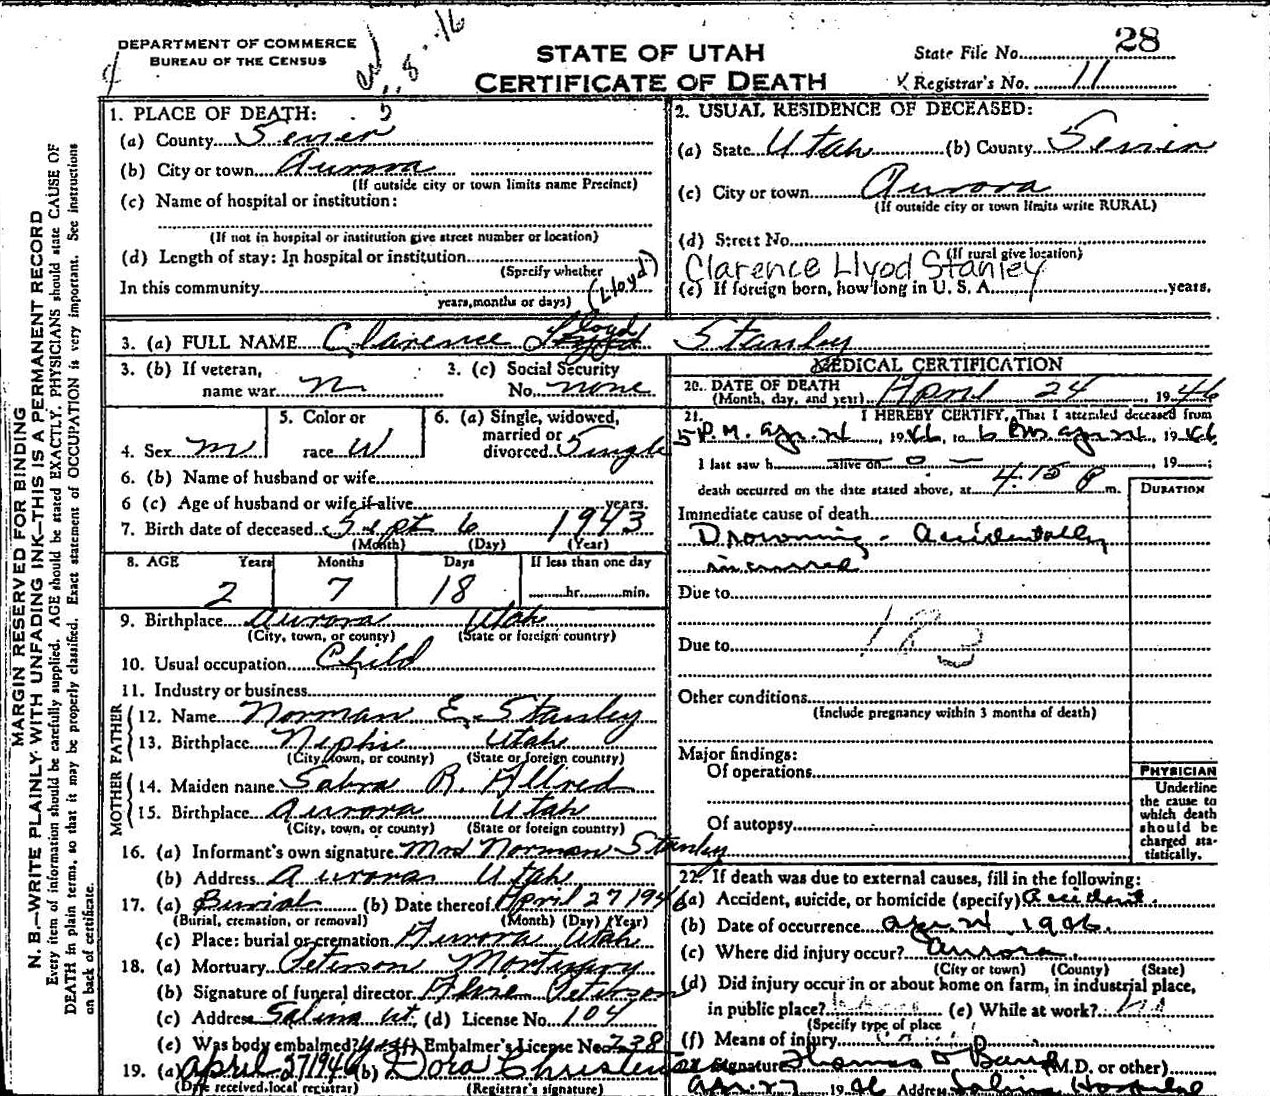 28
DEPARTMENT OF COMMERCE
BUREAU OF THE CENSUS
STATE OF UTAH
CERTIFICATE OF DEATH
State File No.
Registrar's No. 11
MARGIN RESERVED FOR BINDING
N. B.—WRITE PLAINLY WITH UNFADING INK—THIS IS A PERMANENT RECORD
Every item of information should be carefully supplied. AGE should be stated EXACTLY. PHYSICIANS should state CAUSE OF
DEATH in plain terms, so that it may be properly classified. Exact statement of OCCUPATION is very important. See instructions
on back of certificate.
1. PLACE OF DEATH:
(a) County Sevier
(b) City or town Aurora
(If outside city or town limits name Precinct)
(c) Name of hospital or institution:
(If not in hospital or institution give street number or location)
(d) Length of stay: In hospital or institution
(Specify whether
In this community
years, months or days)
(Lloyd)
2. USUAL RESIDENCE OF DECEASED:
(a) State Utah (b) County Sevier
(c) City or town Aurora
(If outside city or town limits write RURAL)
(d) Street No.
(If rural give location)
Clarence Llyod Stanley
(e) If foreign born, how long in U. S. A. years.
3. (a) FULL NAME Clarence Lloyd Stanley
3. (b) If veteran,
name war n
3. (c) Social Security
No. none
4. Sex m
5. Color or
race W
6. (a) Single, widowed,
married or
divorced Single
6. (b) Name of husband or wife
6 (c) Age of husband or wife if alive years.
7. Birth date of deceased Sept 6 1943
(Month) (Day) (Year)
8. AGE Years Months Days If less than one day
2 7 18 hr. min.
9. Birthplace Aurora Utah
(City, town, or county) (State or foreign country)
10. Usual occupation Child
11. Industry or business
FATHER
12. Name Norman E. Stanley
13. Birthplace Nephi Utah
(City, town, or county) (State or foreign country)
MOTHER
14. Maiden name Sabra R. Allred
15. Birthplace Aurora Utah
(City, town, or county) (State or foreign country)
16. (a) Informant's own signature Mrs Norman Stanley
(b) Address Aurora Utah
17. (a) Burial (b) Date thereof April 27 1946
(Burial, cremation, or removal) (Month) (Day) (Year)
(c) Place: burial or cremation Aurora Utah
18. (a) Mortuary Peterson Mortuary
(b) Signature of funeral director Peterson
(c) Address Salina Ut. (d) License No. 104
(e) Was body embalmed? yes (f) Embalmer's License No. 238
19. (a) April 27 1946 (b) Dora Christensen
(Date received local registrar) (Registrar's signature)
MEDICAL CERTIFICATION
20. DATE OF DEATH
(Month, day, and year) April 24 1946
21. I HEREBY CERTIFY, That I attended deceased from
5 P.M. Apr. 24, 1946, to 6 P.M. Apr. 24, 1946
I last saw h alive on 0 , 19 ;
death occurred on the date stated above, at 4:15 P m.
DURATION
Immediate cause of death
Drowning - accidentally
incurred
Due to
183
Due to
Other conditions
(Include pregnancy within 3 months of death)
Major findings:
Of operations
Of autopsy
PHYSICIAN
Underline
the cause to
which death
should be
charged sta-
tistically.
22. If death was due to external causes, fill in the following:
(a) Accident, suicide, or homicide (specify) accident.
(b) Date of occurrence Apr. 24, 1946.
(c) Where did injury occur? Aurora.
(City or town) (County) (State)
(d) Did injury occur in or about home on farm, in industrial place,
in public place? (e) While at work? no
(Specify type of place
(f) Means of injury
23. Signature (M.D. or other)
Apr. 27 1946 Address Salina Hospital